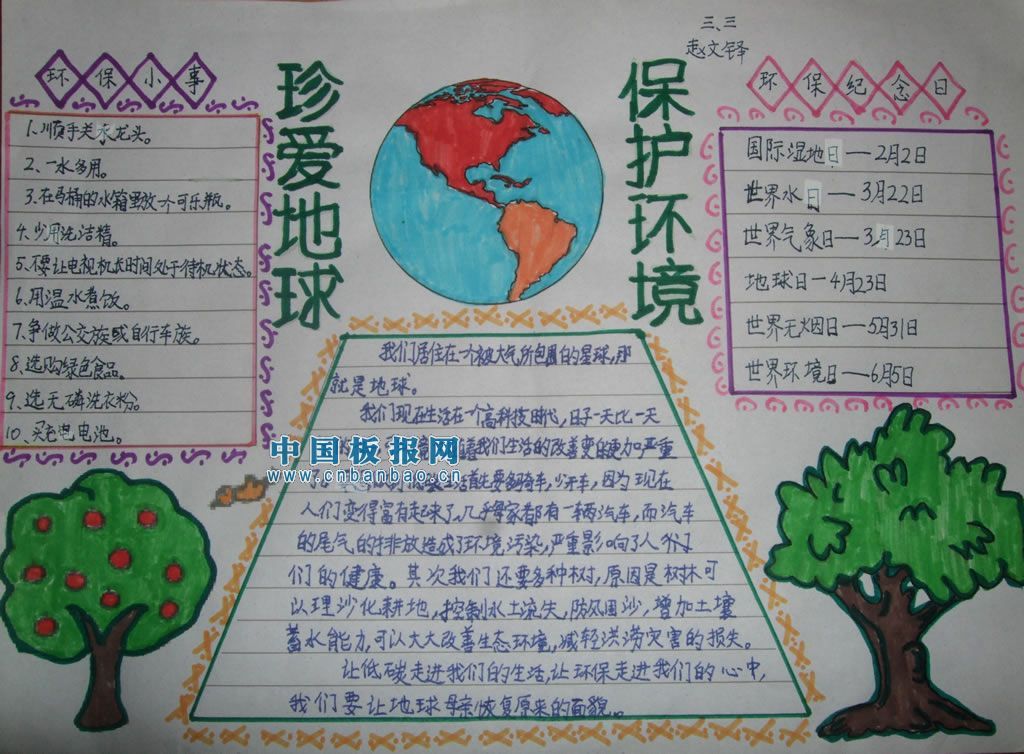 三、三
赵文铎
珍爱地球
保护环境
环保小事
1、顺手关水龙头。
2、一水多用。
3、在马桶的水箱里放一个可乐瓶。
4、少用洗洁精。
5、不要让电视机长时间处于待机状态。
6、用温水煮饭。
7、争做公交族或自行车族。
8、选购绿色食品。
9、选无磷洗衣粉。
10、买充电电池。
环保纪念日
国际湿地日——2月2日
世界水日——3月22日
世界气象日——3月23日
地球日—4月23日
世界无烟日——5月31日
世界环境日——6月5日
我们居住在一个被大气所包围的星球,那
就是地球。
我们现在生活在一个高科技时代,日子一天比一天
着我们生活的改善变的更加严重
首先要多骑车,少开车,因为现在
人们变得富有起来了,几乎每家都有一辆汽车,而汽车
的尾气的排放造成了环境污染,严重影响了人
们的健康。其次我们还要多种树,原因是树木可
以理沙化耕地,控制水土流失,防风固沙,增加土壤
蓄水能力,可以大大改善生态环境,减轻洪涝灾害的损失。
让低碳走进我们的生活,让环保走进我们的心中,
我们要让地球母亲恢复原来的面貌。
中国板报网
www.cnbanbao.cn